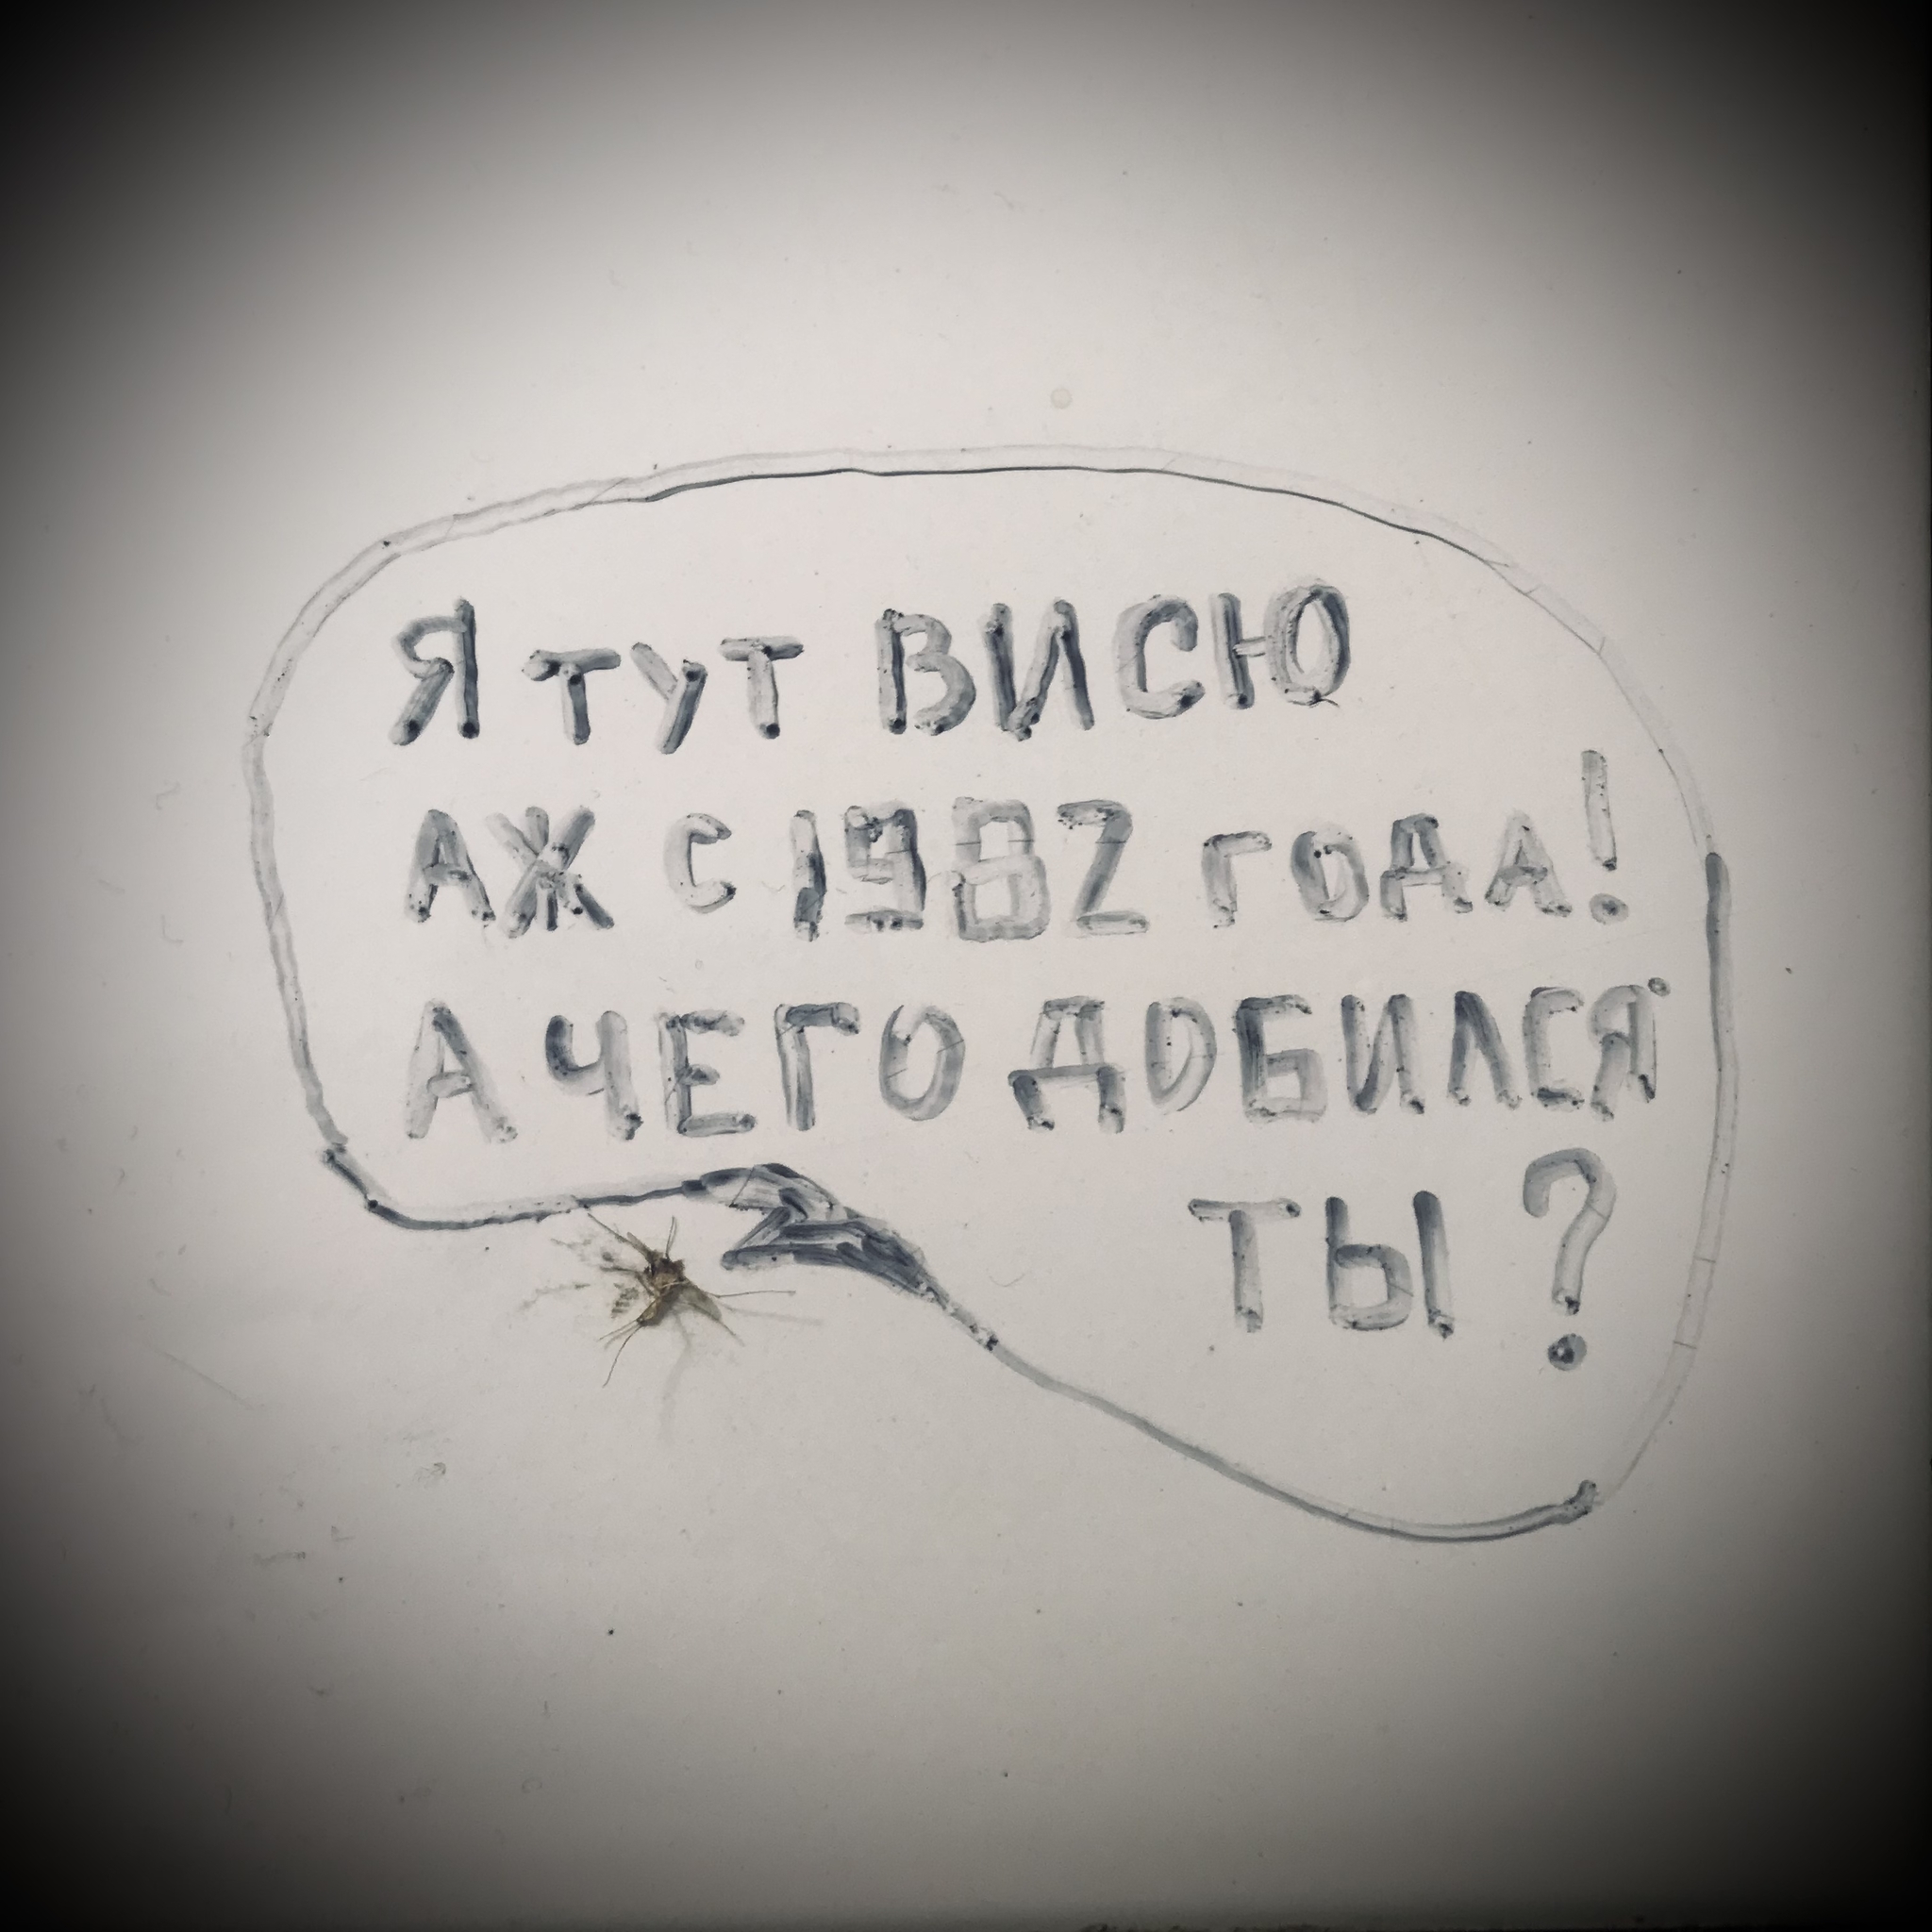 Я тут ВИСЮ
АЖ С 1982 ГОДА!
А ЧЕГО ДОБИЛСЯ
ТЫ?